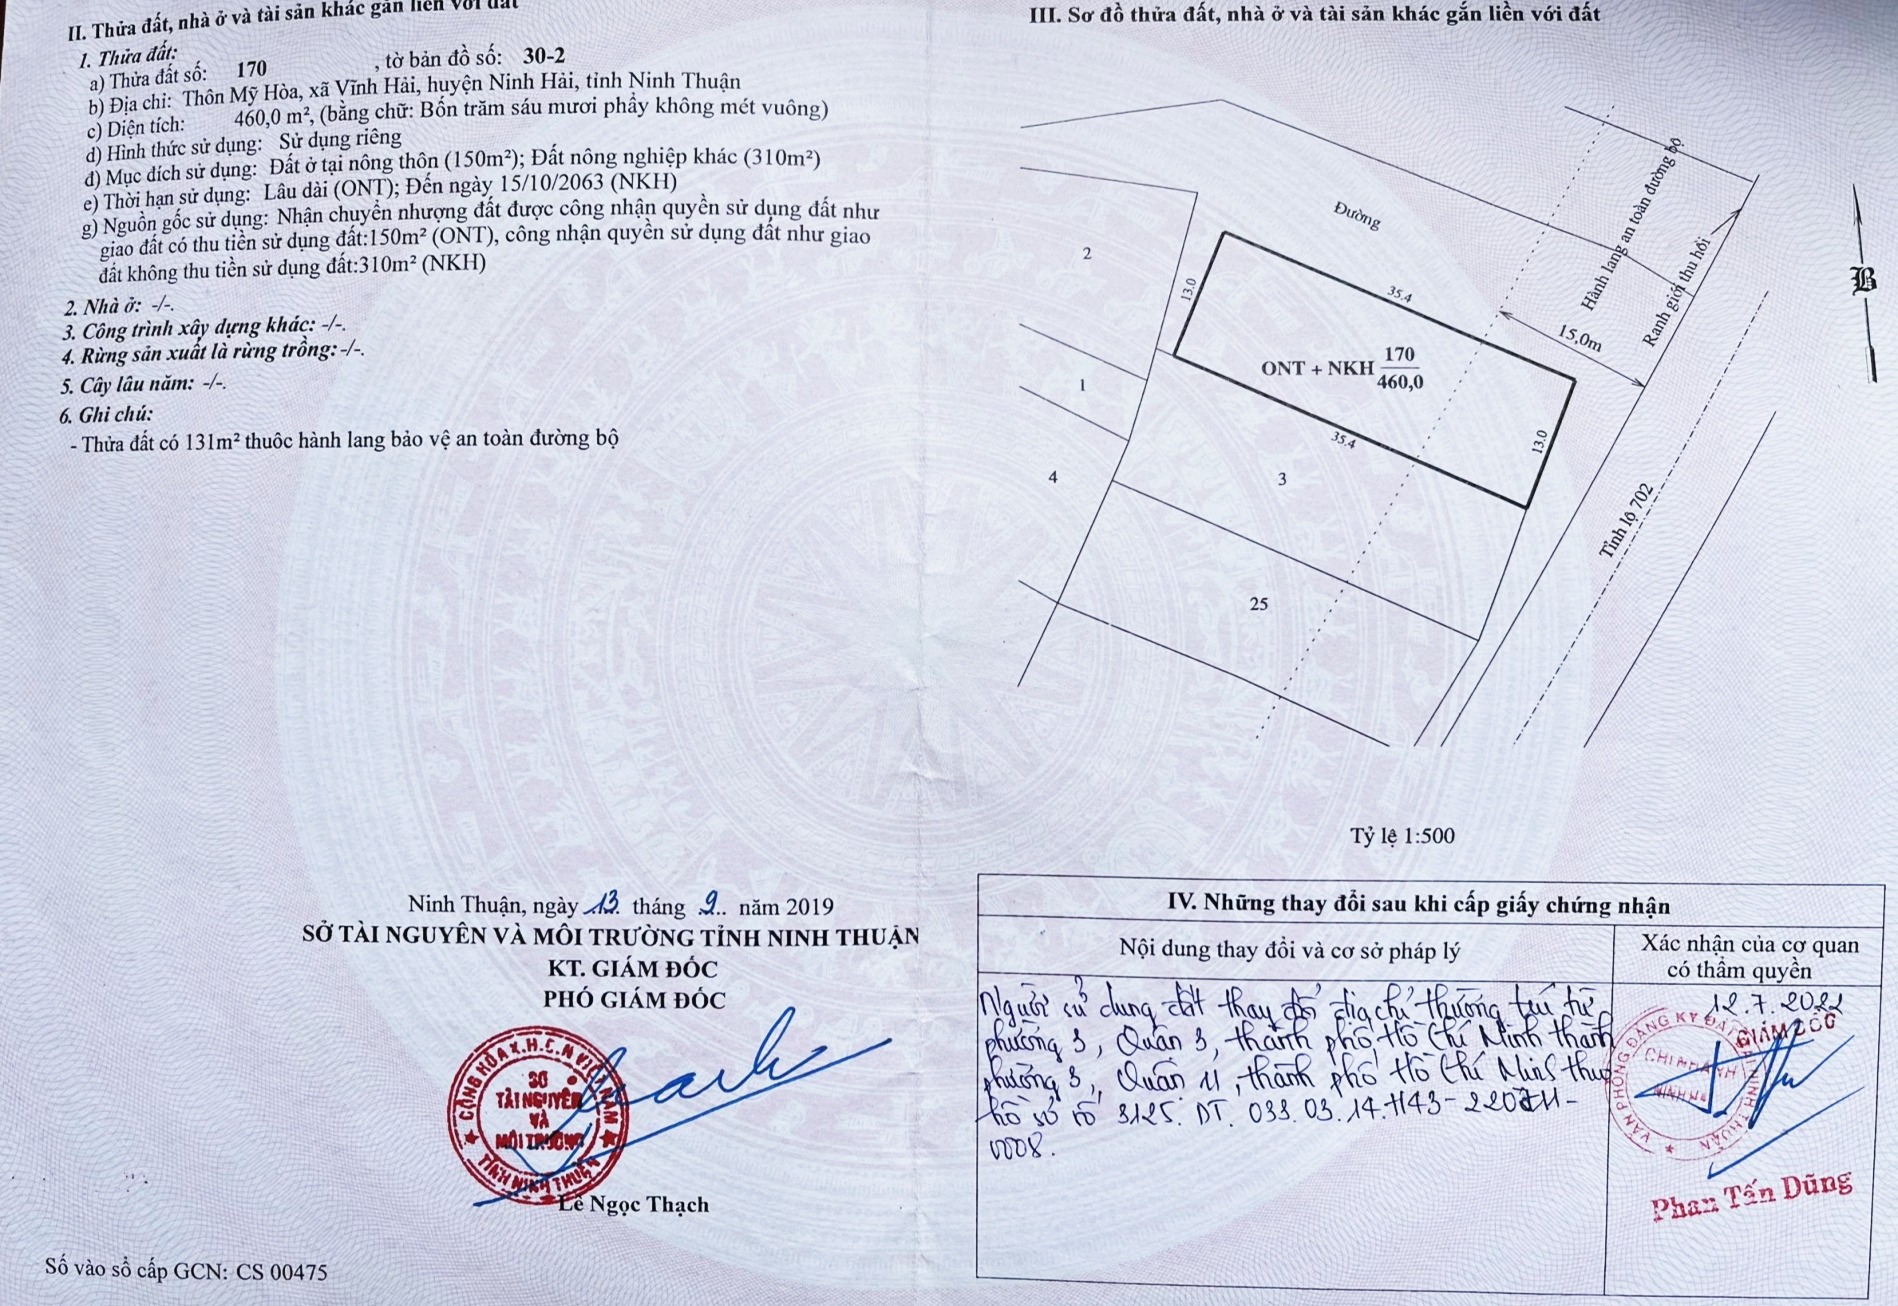 II. Thửa đất, nhà ở và tài sản khác gắn liền với đất
1. Thửa đất:
a) Thửa đất số: 170 , tờ bản đồ số: 30-2
b) Địa chỉ: Thôn Mỹ Hòa, xã Vĩnh Hải, huyện Ninh Hải, tỉnh Ninh Thuận
c) Diện tích: 460,0 m², (bằng chữ: Bốn trăm sáu mươi phẩy không mét vuông)
d) Hình thức sử dụng: Sử dụng riêng
đ) Mục đích sử dụng: Đất ở tại nông thôn (150m²); Đất nông nghiệp khác (310m²)
e) Thời hạn sử dụng: Lâu dài (ONT); Đến ngày 15/10/2063 (NKH)
g) Nguồn gốc sử dụng: Nhận chuyển nhượng đất được công nhận quyền sử dụng đất như
giao đất có thu tiền sử dụng đất:150m² (ONT), công nhận quyền sử dụng đất như giao
đất không thu tiền sử dụng đất:310m² (NKH)
2. Nhà ở: -/-.
3. Công trình xây dựng khác: -/-.
4. Rừng sản xuất là rừng trồng: -/-.
5. Cây lâu năm: -/-.
6. Ghi chú:
- Thửa đất có 131m² thuôc hành lang bảo vệ an toàn đường bộ
Ninh Thuận, ngày 13 tháng 9 năm 2019
SỞ TÀI NGUYÊN VÀ MÔI TRƯỜNG TỈNH NINH THUẬN
KT. GIÁM ĐỐC
PHÓ GIÁM ĐỐC
CỘNG HÒA X.H.C.N VIỆT NAM
SỞ
TÀI NGUYÊN
VÀ
MÔI TRƯỜNG
TỈNH NINH THUẬN
Lê Ngọc Thạch
Số vào sổ cấp GCN: CS 00475
III. Sơ đồ thửa đất, nhà ở và tài sản khác gắn liền với đất
Đường
Hành lang an toàn đường bộ
Ranh giới thu hồi
B
2
13.0
35.4
15,0m
ONT + NKH 170
460,0
1
35.4
13.0
4
3
Tỉnh lộ 702
25
Tỷ lệ 1:500
IV. Những thay đổi sau khi cấp giấy chứng nhận
Nội dung thay đổi và cơ sở pháp lý
Xác nhận của cơ quan
có thẩm quyền
Người sử dụng đất thay đổi địa chỉ thường trú từ
phường 3, Quận 3, thành phố Hồ Chí Minh thành
phường 3, Quận 11, thành phố Hồ Chí Minh theo
hồ sơ số 3125. DT. 033. 03. 14. H43 - 220711 -
0008.
12.7.2022
GIÁM ĐỐC
VĂN PHÒNG ĐĂNG KÝ ĐẤT ĐAI NINH THUẬN
CHI NHÁNH
NINH HẢI
Phan Tấn Dũng